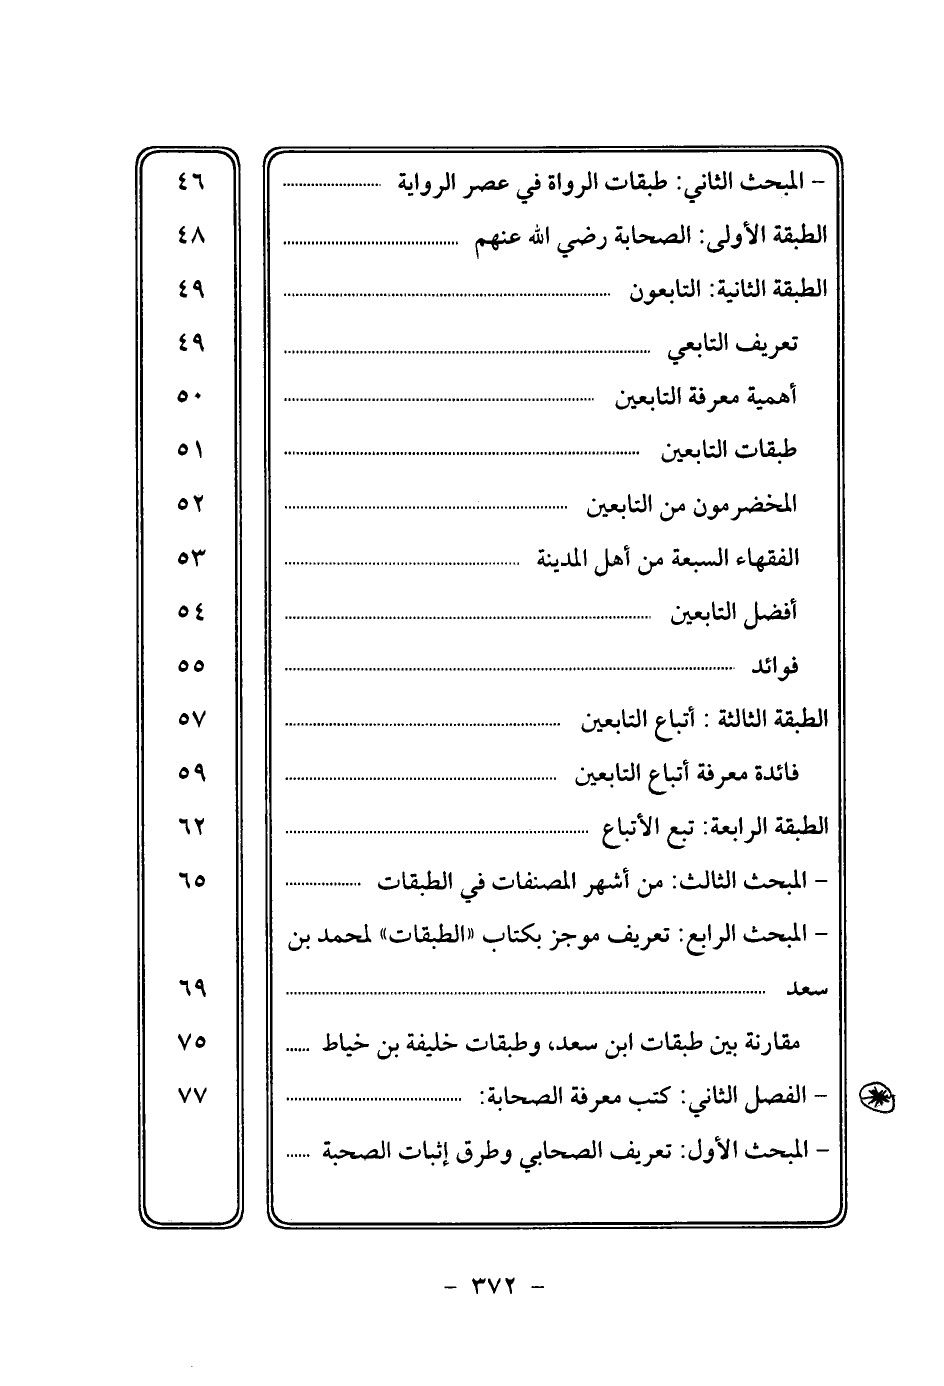 - المبحث الثاني: طبقات الرواة في عصر الرواية ........ ٤٦
الطبقة الأولى: الصحابة رضي الله عنهم ........ ٤٨
الطبقة الثانية: التابعون ........ ٤٩
تعريف التابعي ........ ٤٩
أهمية معرفة التابعين ........ ٥٠
طبقات التابعين ........ ٥١
المخضرمون من التابعين ........ ٥٢
الفقهاء السبعة من أهل المدينة ........ ٥٣
أفضل التابعين ........ ٥٤
فوائد ........ ٥٥
الطبقة الثالثة : أتباع التابعين ........ ٥٧
فائدة معرفة أتباع التابعين ........ ٥٩
الطبقة الرابعة: تبع الأتباع ........ ٦٢
- المبحث الثالث: من أشهر المصنفات في الطبقات ........ ٦٥
- المبحث الرابع: تعريف موجز بكتاب «الطبقات» لمحمد بن
سعد ........ ٦٩
مقارنة بين طبقات ابن سعد، وطبقات خليفة بن خياط ...... ٧٥
- الفصل الثاني: كتب معرفة الصحابة: ........ ٧٧
- المبحث الأول: تعريف الصحابي وطرق إثبات الصحبة ......
- ٣٧٢ -